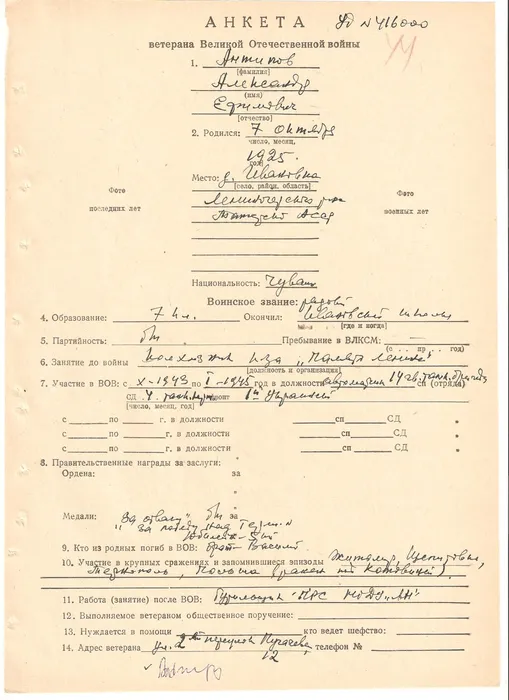 АНКЕТА Уд №416000
ветерана Великой Отечественной войны
1. Антипов
[фамилия]
Александр
(имя)
Ефимович
[отчество]
2. Родился: 7 октября
число, месяц,
1925.
год)
Место: д. Ивановка
[село, район, область]
Фото последних лет
Фото военных лет
Лениногорского р-на
Татарской АССР
Национальность: Чуваш
Воинское звание: рядовой
4. Образование: 7 кл. Окончил: Ивановская школа
[где и когда]
5. Партийность: б/п Пребывание в ВЛКСМ:
год)
6. Занятие до войны колхозник к-за „Память Ленина"
[должность и организация]
7. Участие в ВОВ: с X-1943 по I-1945 год в должности автоматчик 14 гв. танк. бригады сп (отряда)
СД 4 танк. фронт 1й Украинский
[число, месяц, год)
с по г. в должности сп СД
с по г. в должности сп СД
с по г. в должности сп СД
8. Правительственные награды за заслуги:
Ордена: за
Медали: „За отвагу" за
„За победу над Герм."
9. Кто из родных погиб в ВОВ: брат Василий
10. Участие в крупных сражениях и запомнившиеся эпизоды Житомир,
Тернополь, Польша (ранен
11. Работа (занятие) после ВОВ:
12. Выполняемое ветераном общественное поручение:
13. Нуждается в помощи кто ведет шефство:
14. Адрес ветерана ул. 2ой переулок Пугачева, телефон №
12,